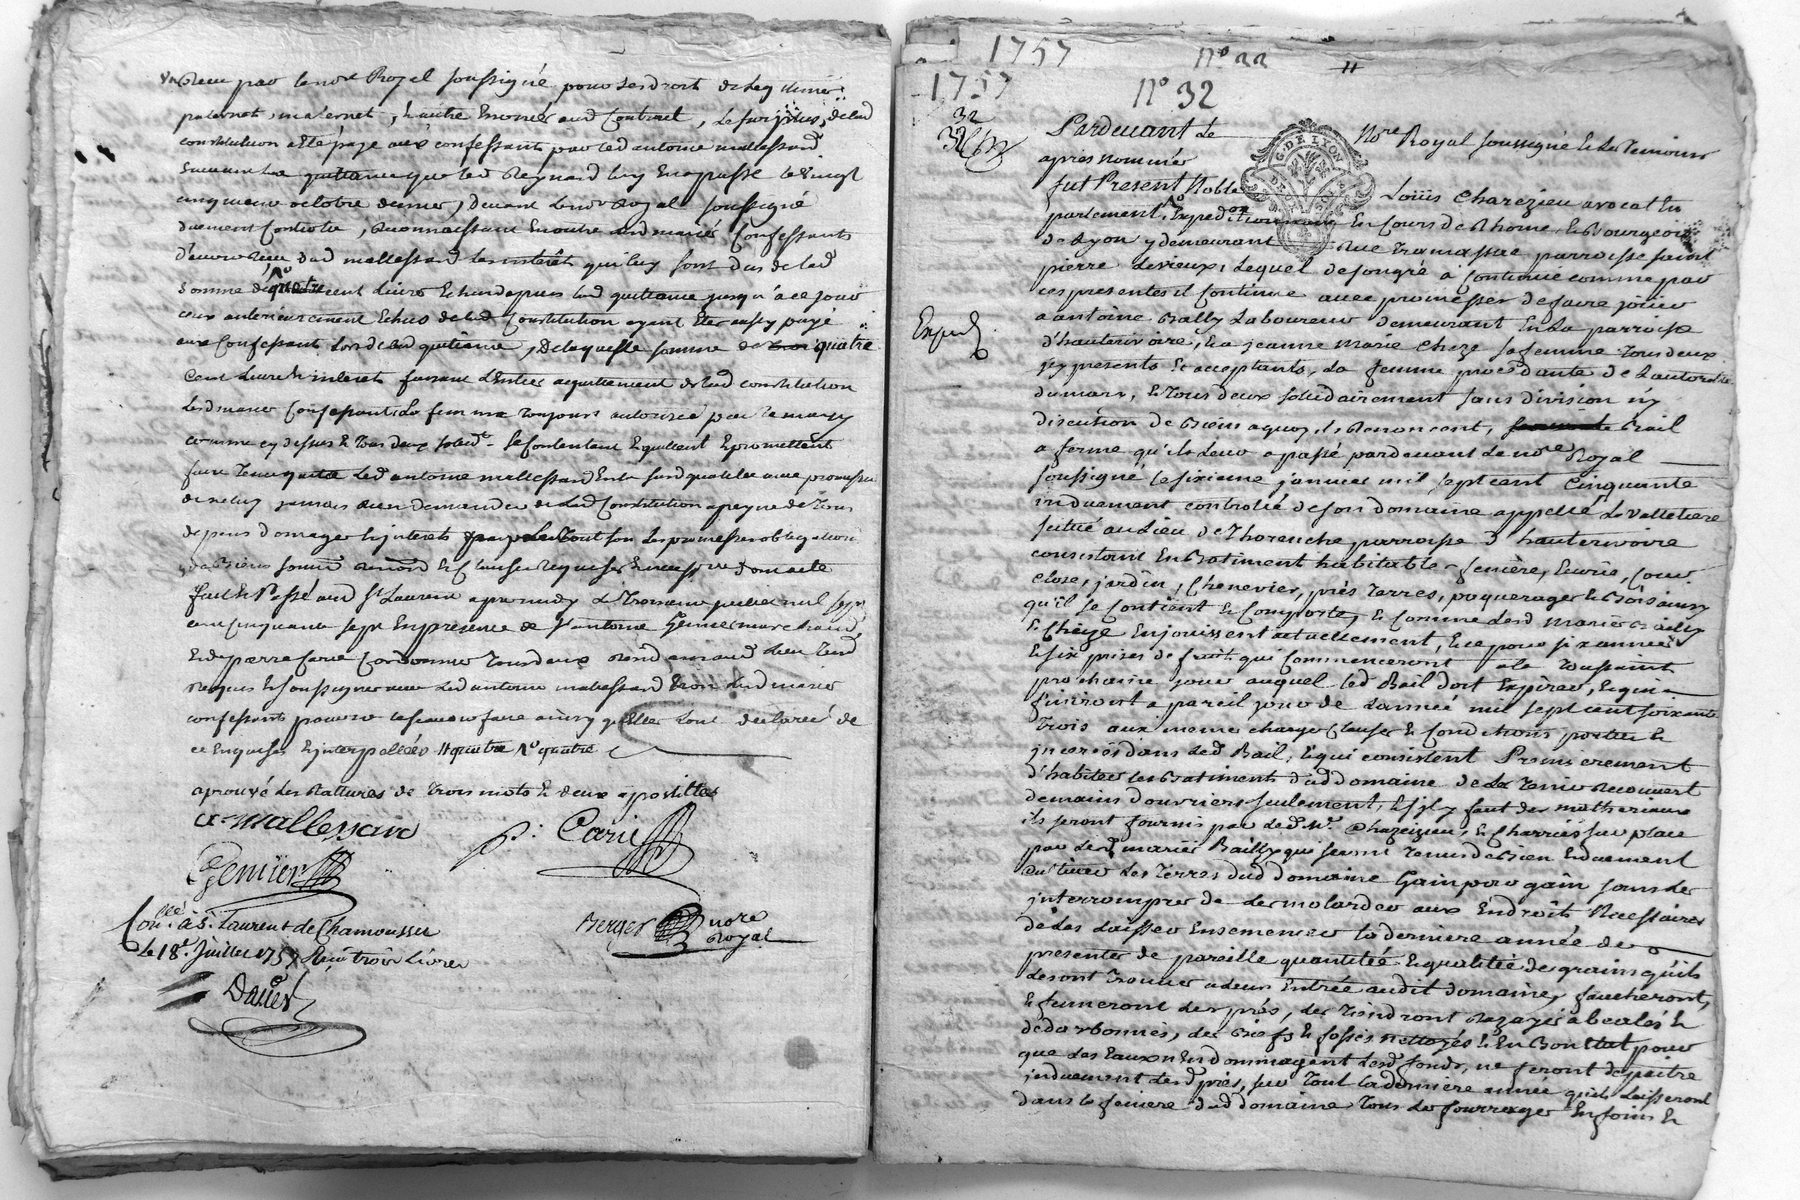 par le no.re Royal soussigné pour les droits de
paternel, maternel, & autre Enoncés aud Contrat, de lad
constitution a été payé aux confessants par led antoine mallessard
suivant la quittance que led Reynard luy En a passé le vingt
cinquieme octobre dernier, devant le no.re Royal soussigné
duement Controlé, Reconnaissant En outre lesd mariés Confessants
d'avoir Reçu dud mallessard les interets qui luy sont dus de lad
somme de quatre cent livres Echus depuis lad quittance jusqu'à ce jour
ceux anterieurement Echus de lad Constitution ayant Eté aussy payé
aux Confessant lors de lad quittance, De laquelle somme de quatre
Cent livres & interets faisant l'Entier acquittement de lad constitution
lesd mariés Confessants la femme toujours autorisée par le mary
comme cy dessus & tous deux solid.t se Contentent En quittent & promettent
faire tenir quitte led antoine mallessard avec promesse
de ne luy jamais rien demander de lad Constitution a peyne de tous
depens domages & interets
de Biens soumis renon.on & Clauses Requises
fait & Passé aud S.t Laurent apres midy Le Treizieme juillet mil sept
cent cinquante sept En presence de S.r antoine Gemier marchand
& de pierre Carie Cordonnier tous deux aud lieu temd
Requis & soussignés avec led antoine mallessard & non lesd mariés
confessants pour ne le savoir faire ainsy qu'Elles l'ont declaré de
ce Enquises & interpellées // quatre quatre
aprouvé les Rattures de trois mots & deux apostilles
a mallessard
p: Carie
Gemier
Con.llé à S.t Laurent de Chamousset
Le 18.e Juillet 1757 Reçu trois Livres
Berger no.re Royal
1757 n.o 22
1757 N.o 32
32
32
Pardevant Le No.re Royal soussigné & les Temoins
apres nommés
G. DE LYON
fut Present Noble Louïs Charézieu avocat En
parlement, En Cours de Rome & Bourgeois
de Lyon y demeurant Rue Tramassac parroisse saint
pierre Levieux, Lequel de son gré à Continué comme par
ces presentes il Continue avec promesses de faire jouir
Exped.
a antoine Bally Laboureur demeurant En La parroisse
d'hauterivoire, & a jeanne marie Cheze sa femme tous deux
jcy presents & acceptants, La femme procedante de L'autorité
du mary, & tous deux solidairement sans division ny
discution de Biens a quoy ils Renoncent, Bail
a ferme qu'il Leur a passé pardevant Le no.re Royal
soussigné le sixieme janvier mil sept cent Cinquante
un duement controlé de son domaine appellé La Valletiere
situé au Lieu de Thorenche parroisse d'hauterivoire
consistant En Batiment habitable, feniere, Ecurie, Cour
close, jardin, Chenevier, prés terres, paquerages & Bois ainsy
qu'il se Contient & Comporte, & comme lesd mariés Bailly
& Cheze En jouissent actuellement, & ce pour six années
& six prises de fruits qui Commenceront a la toussaint
prochaine jour auquel led Bail doit Expirer, & qui
finiront a pareil jour de L'année mil sept cent soixante
trois aux meme charges Clauses & Conditions portées &
jnserées dans led Bail, & qui consistent Premierement
d'habiter les Batiments dud domaine de Les tenir Recouvert
de mains d'ouvriers seulement, & s'il y faut des matheriaux
ils seront fournis par led M.r Charezieu, & Charriés sur place
par lesd mariés Bailly qui seront tenus de Bien & duement
cultiver Les terres dud domaine Gain pour gain sans Les
interrompre de Les molarder aux Endroits Necessaires
de Les Laisser Ensemencées la derniere année de
presenter de pareille quantité & qualité de grains qu'ils
Les ont trouvé a leur Entrée audit domaine, faucheront,
& fumeront les prés, Les tiendront Razayés a bealés &
de darbonnés, des Biefs & fossés nettoyés & En Bon Etat pour
que les Eaux n'Endommagent Lesd fonds, ne feront depaitre
jnduement Lesd prés, sur tout la derniere année qu'ils Laisseront
dans la feniere dud domaine tous Les fourrages En foins &